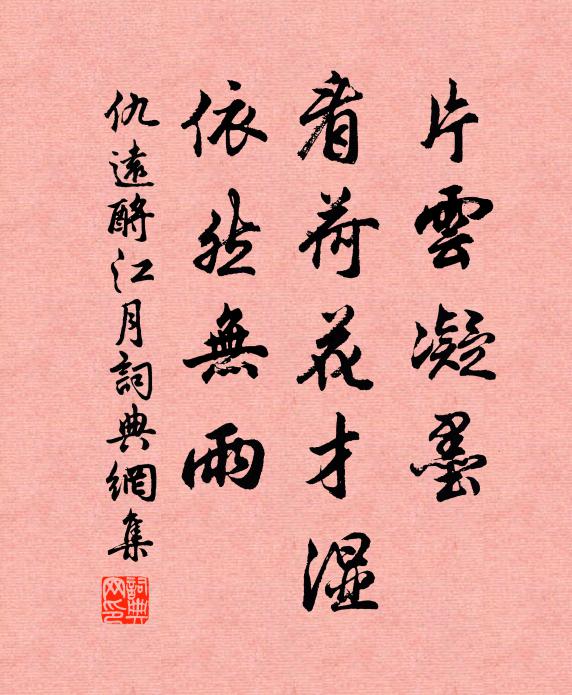 片雲凝墨
看荷花才湿
依然無雨
仇遠酹江月詞典網集
詞典網印